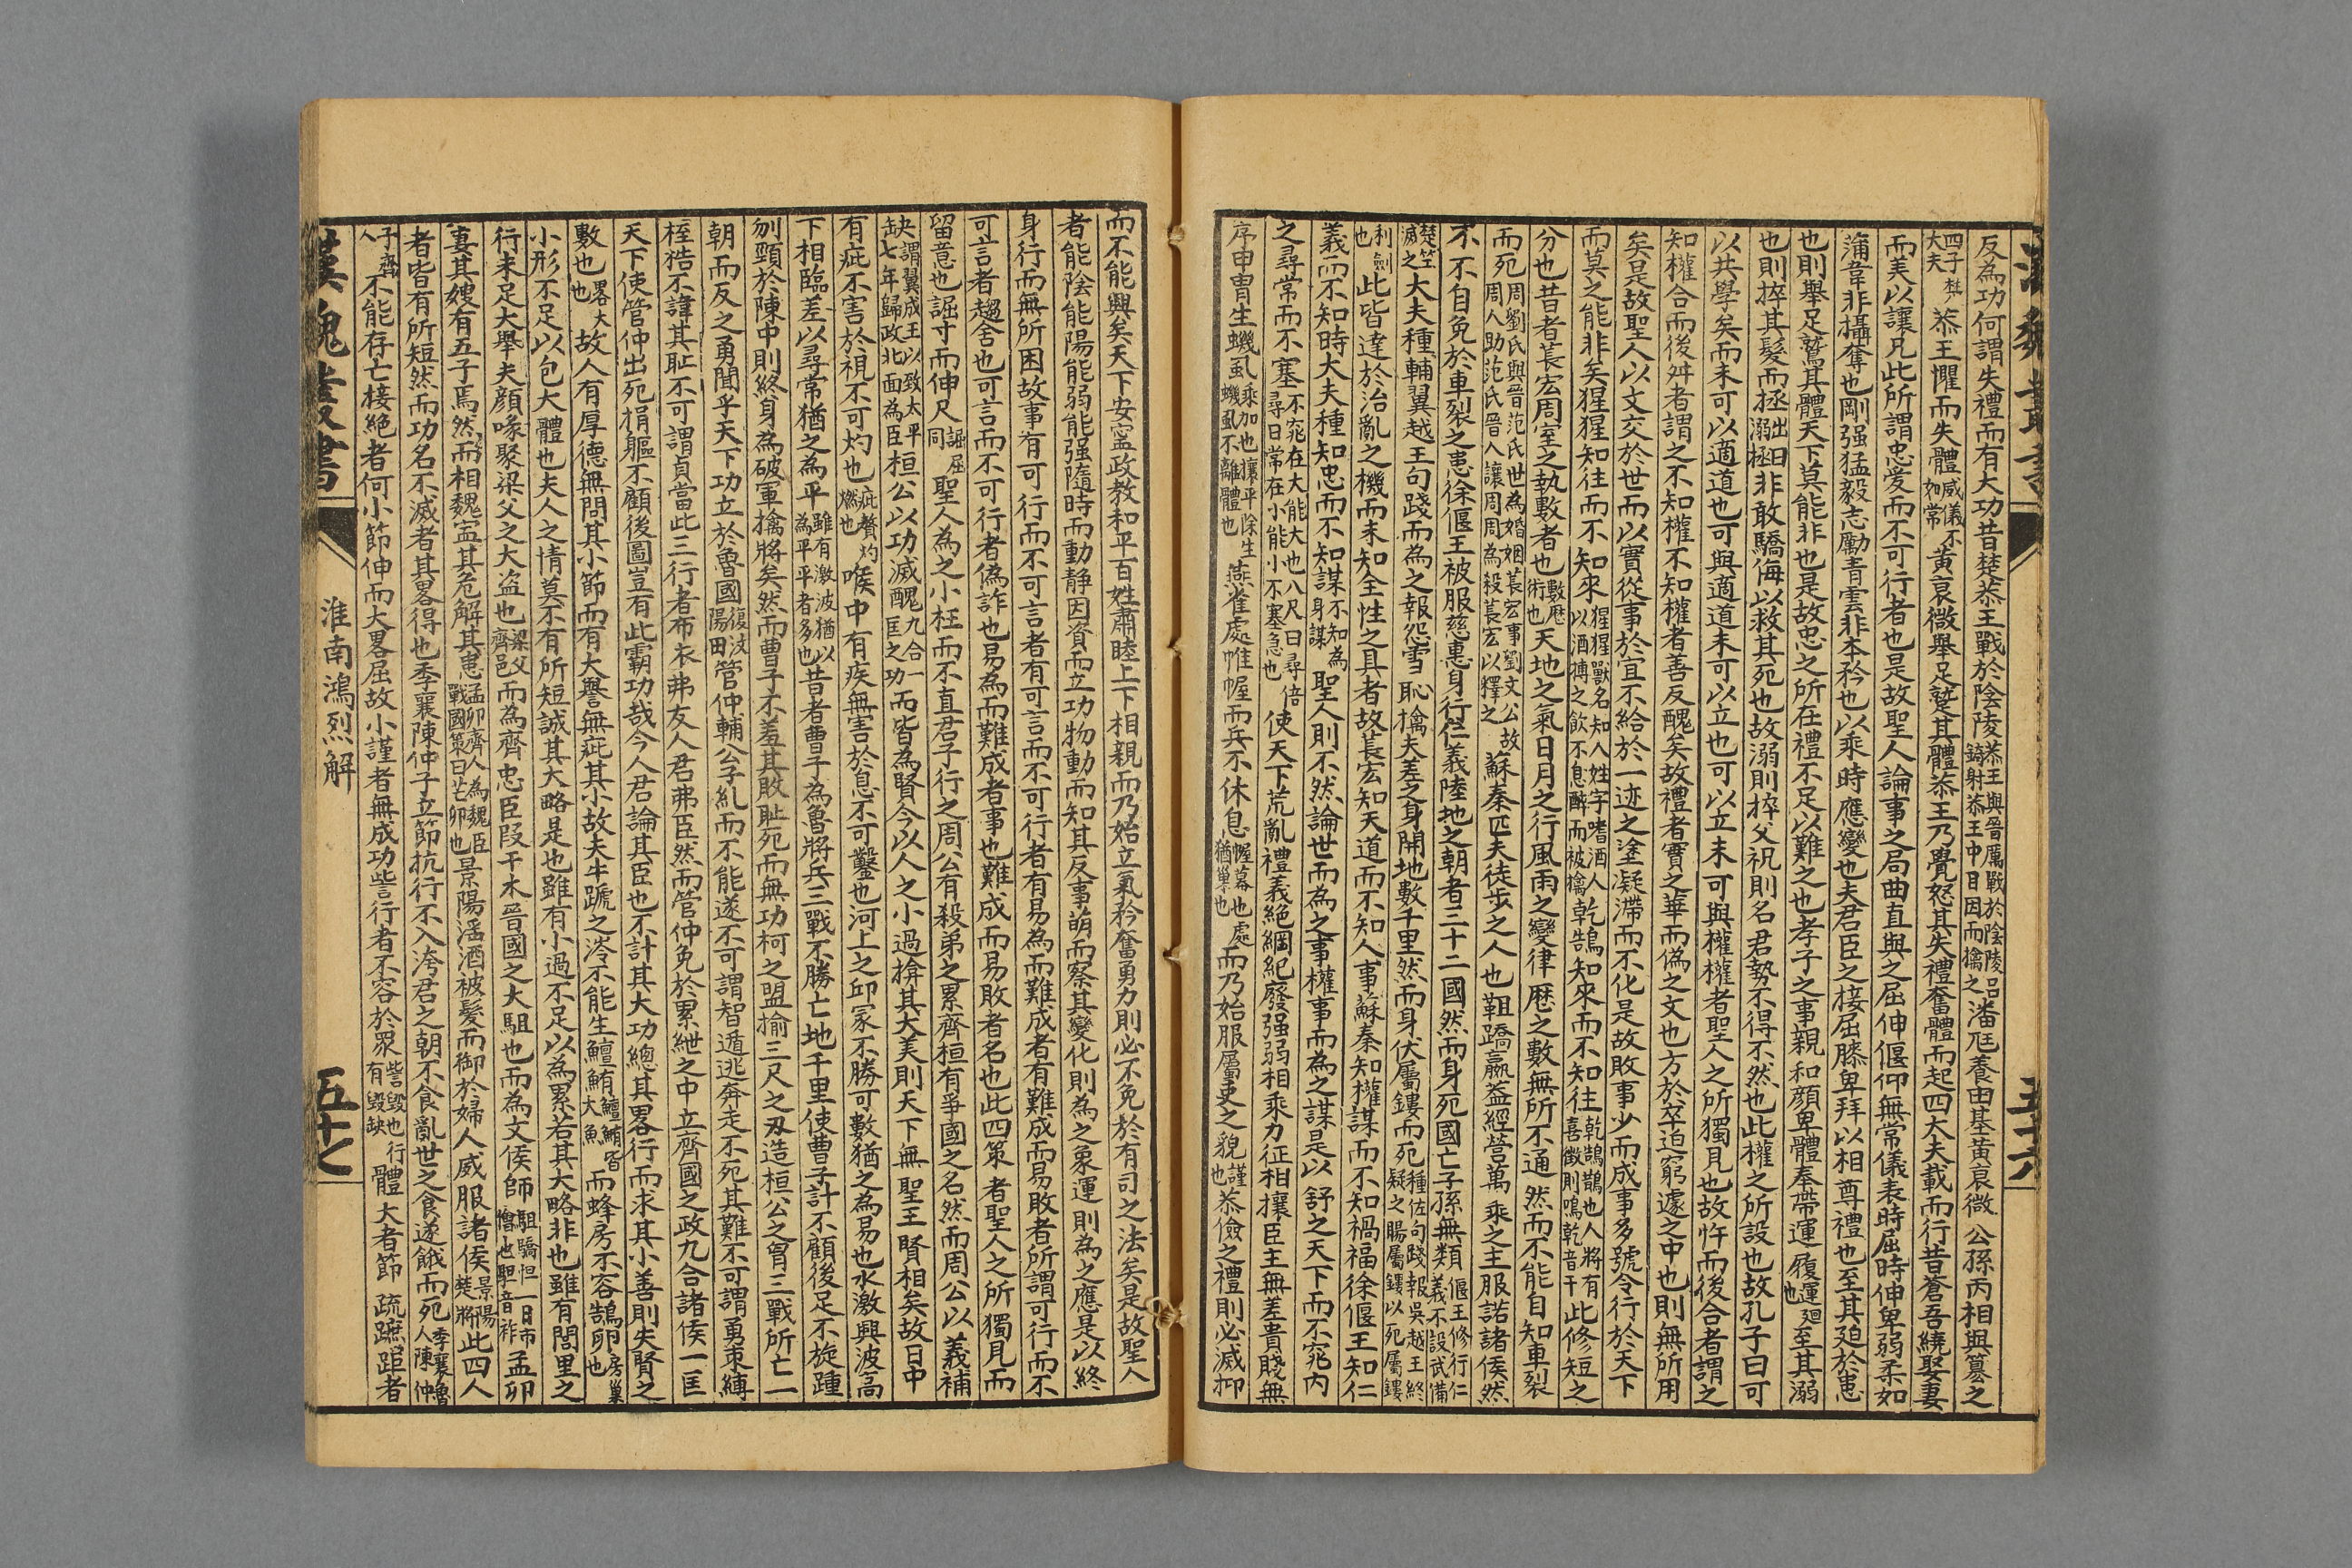 反為功何謂失禮而有大功昔楚恭王戰於陰陵恭王與晉厲戰於陰陵呂錡射恭王中目因而擒之潘尫養由基黃衰微公孫丙相與篡之
四子楚大夫恭王懼而失體威儀不如常黃衰微舉足蹵其體恭王乃覺怒其失禮奮體而起四大夫載而行昔蒼吾繞娶妻
而美以讓兄此所謂忠愛而不可行者也是故聖人論事之局曲直與之屈伸偃仰無常儀表時屈時伸卑弱柔如
蒲葦非攝奪也剛强猛毅志勵青雲非本矜也以乘時應變也夫君臣之接屈膝卑拜以相尊禮也至其迫於患
也則舉足蹵其體天下莫能非也是故忠之所在禮不足以難之也孝子之事親和顔卑體奉帶運履運廻也至其溺
也則捽其髮而拯出溺曰拯非敢驕侮以救其死也故溺則捽父祝則名君勢不得不然也此權之所設也故孔子曰可
以共學矣而未可以適道也可與適道未可以立也可以立未可與權權者聖人之所獨見也故忤而後合者謂之
知權合而後舛者謂之不知權不知權者善反醜矣故禮者實之華而偽之文也方於卒迫窮遽之中也則無所用
矣是故聖人以文交於世而以實從事於宜不給於一迹之塗凝滯而不化是故敗事少而成事多號令行於天下
而莫之能非矣猩猩知往而不知來猩猩獸名知人姓字嗜酒人以酒搏之飲不息醉而被擒乾鵠知來而不知往乾鵠鵲也人將有喜徵則鳴乾音干此修短之
分也昔者萇宏周室之執數者也數歷術也天地之氣日月之行風雨之變律歷之數無所不通然而不能自知車裂
而死周劉氏與晉范氏世為婚姻萇宏事劉文公故周人助范氏晉人讓周周為殺萇宏以釋之蘇秦匹夫徒步之人也靼蹻嬴蓋經營萬乘之主服諾諸侯然
不不自免於車裂之患徐偃王被服慈惠身行仁義陸地之朝者三十二國然而身死國亡子孫無類偃王修行仁義不設武備
楚笠滅之大夫種輔翼越王句踐而為之報怨雪恥擒夫差之身開地數千里然而身伏屬鏤而死種佐句踐報吳越王終疑之賜屬鏤以死屬鏤
利劍也此皆達於治亂之機而未知全性之具者故萇宏知天道而不知人事蘇秦知權謀而不知禍福徐偃王知仁
義而不知時大夫種知忠而不知謀不知為身謀聖人則不然論世而為之事權事而為之謀是以舒之天下而不窕內
之尋常而不塞不窕在大能大也八尺曰尋倍尋曰常在小能小不塞急也使天下荒亂禮義絕綱紀廢强弱相乘力征相攘臣主無差貴賤無
序甲冑生蟣虱乘加也攘平除生蟣虱不離體也燕雀處帷幄而兵不休息幄幕也處猶巢也而乃始服屬臾之貌謹也恭儉之禮則必滅抑
而不能興矣天下安寍政教和平百姓肅睦上下相親而乃始立氣矜奮勇力則必不免於有司之法矣是故聖人
者能陰能陽能弱能强隨時而動靜因資而立功物動而知其反事萌而察其變化則為之象運則為之應是以終
身行而無所困故事有可行而不可言者有可言而不可行者有易為而難成者有難成而易敗者所謂可行而不
可言者趨舍也可言而不可行者偽詐也易為而難成者事也難成而易敗者名也此四策者聖人之所獨見而
留意也誳寸而伸尺誳屈同聖人為之小枉而不直君子行之周公有殺弟之累齊桓有爭國之名然而周公以義補
缺謂翼成王以致太平七年歸政北面為臣桓公以功滅醜九合一匡之功而皆為賢今以人之小過揜其大美則天下無聖王賢相矣故目中
有疵不害於視不可灼也疵贅灼燃也喉中有疾無害於息不可鑿也河上之邱冢不勝可數猶之為易也水激興波高
下相臨差以尋常猶之為平雖有激波猶以為平平者多也昔者曹子為魯將兵三戰不勝亡地千里使曹子計不顧後足不旋踵
刎頸於陳中則終身為破軍擒將矣然而曹子不羞其敗耻死而無功柯之盟揄三尺之刃造桓公之胷三戰所亡一
朝而反之勇聞乎天下功立於魯國復汶陽田管仲輔公子糺而不能遂不可謂智遁逃奔走不死其難不可謂勇束縛
桎梏不諱其耻不可謂貞當此三行者布衣弗友人君弗臣然而管仲免於累紲之中立齊國之政九合諸侯一匡
天下使管仲出死捐軀不顧後圖豈有此霸功哉今人君論其臣也不計其大功總其畧行而求其小善則失賢之
數也畧大也故人有厚德無問其小節而有大譽無疵其小故夫牛蹏之涔不能生鱣鮪鱣鮪皆大魚而蜂房不容鵠卵房巢也
小形不足以包大體也夫人之情莫不有所短誠其大略是也雖有小過不足以為累若其大略非也雖有閭里之
行未足大舉夫顔喙聚梁父之大盗也梁父齊邑而為齊忠臣叚干木晉國之大駔也而為文侯師駔驕怚一曰市儈也駔音祚孟卯
妻其嫂有五子焉然而相魏寍其危解其患孟卯齊人為魏臣戰國策曰芒卯也景陽滛酒被髮而御於婦人威服諸侯景陽楚將此四人
者皆有所短然而功名不滅者其畧得也季襄陳仲子立節抗行不入洿君之朝不食亂世之食遂餓而死季襄魯人陳仲
子齊人不能存亡接絕者何小節伸而大畧屈故小謹者無成功訾行者不容於眾訾毀也行有毀缺體大者節疏蹠距者
漢魏叢書 淮南鴻烈解 五十七